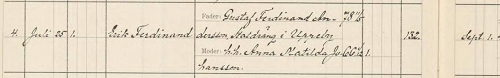 Fader: Gustaf Ferdinand An- 78 11/5
4 Juli 25 1. Erik Ferdinand dersson, Statdräng i Uppeby 132. Sept. 1.
Moder: h.h. Anna Matilda Jo- 66 1.
hansson.